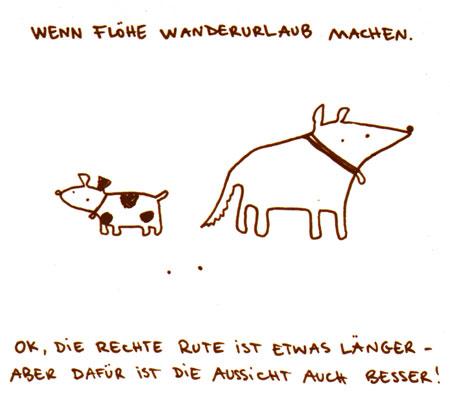 WENN FLÖHE WANDERURLAUB MACHEN.
OK, DIE RECHTE RUTE IST ETWAS LÄNGER –
ABER DAFÜR IST DIE AUSSICHT AUCH BESSER!